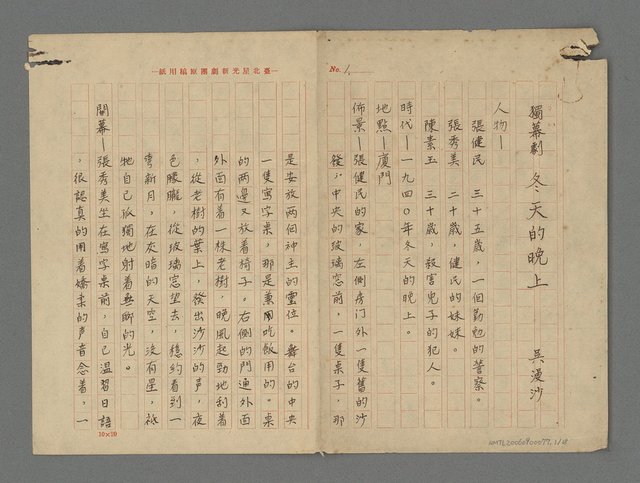 No. 1
獨幕劇 冬天的晚上 吳漫沙
人物—
張健民 三十五歲,一個勤勉的警察。
張秀美 二十歲,健民的妹妹。
陳素玉 三十歲,殺害兒子的犯人。
時代—一九四〇年冬天的晚上。
地點—廈門
佈景—張健民的家,左側房門外一隻舊的沙
發,中央的玻璃窓前,一隻桌子,那
—臺北星光新劇團原稿用紙—
是安放兩個神主的靈位。舞台的中央
一隻寫字桌,那是兼用吃飯用的。桌
的兩邊又放着椅子。右側的門通外面
外面有着一株老樹,晚風起勁地刮着
,從老樹的葉上,發出沙沙的声,夜
色朦朧,從玻璃窓望去,穩約看到一
彎新月,在灰暗的天空,沒有星,祇
牠自己孤獨地射着無聊的光。
開幕—張秀美坐在寫字桌前,自己溫習日語
,很認真的用着嬌柔的声音念着,一
10×20
NMTL20060400077, 1/18